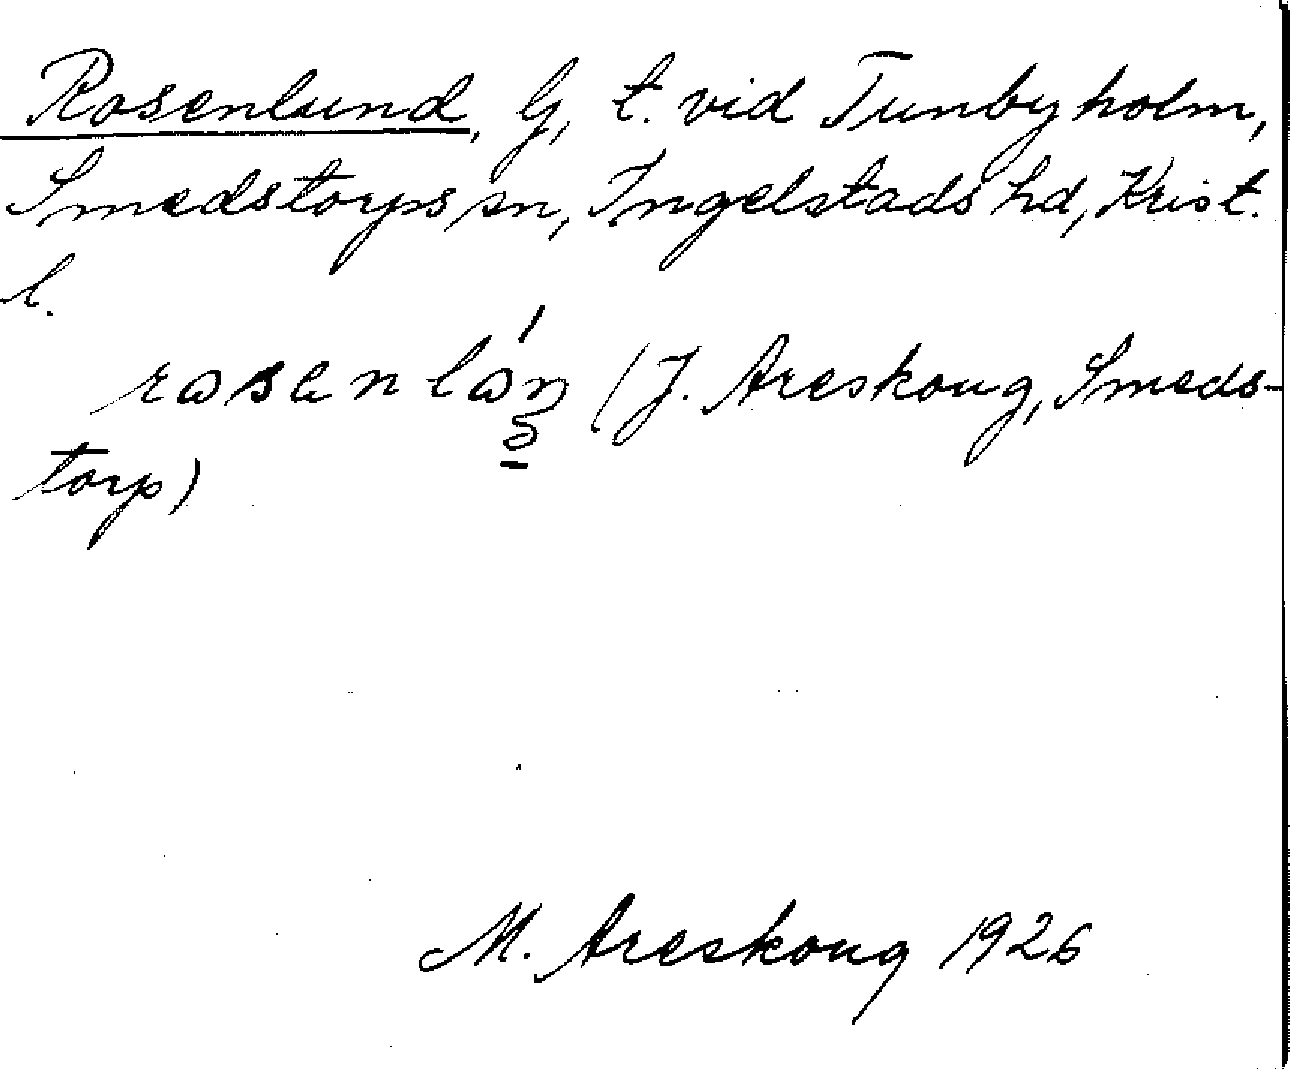 Rosenlund, G, t. vid Tunbyholm,
Smedstorps sn, Ingelstads hd, Krist.
l.
rosenlón (J. Areskoug, Smeds-
torp)
M. Areskoug 1926